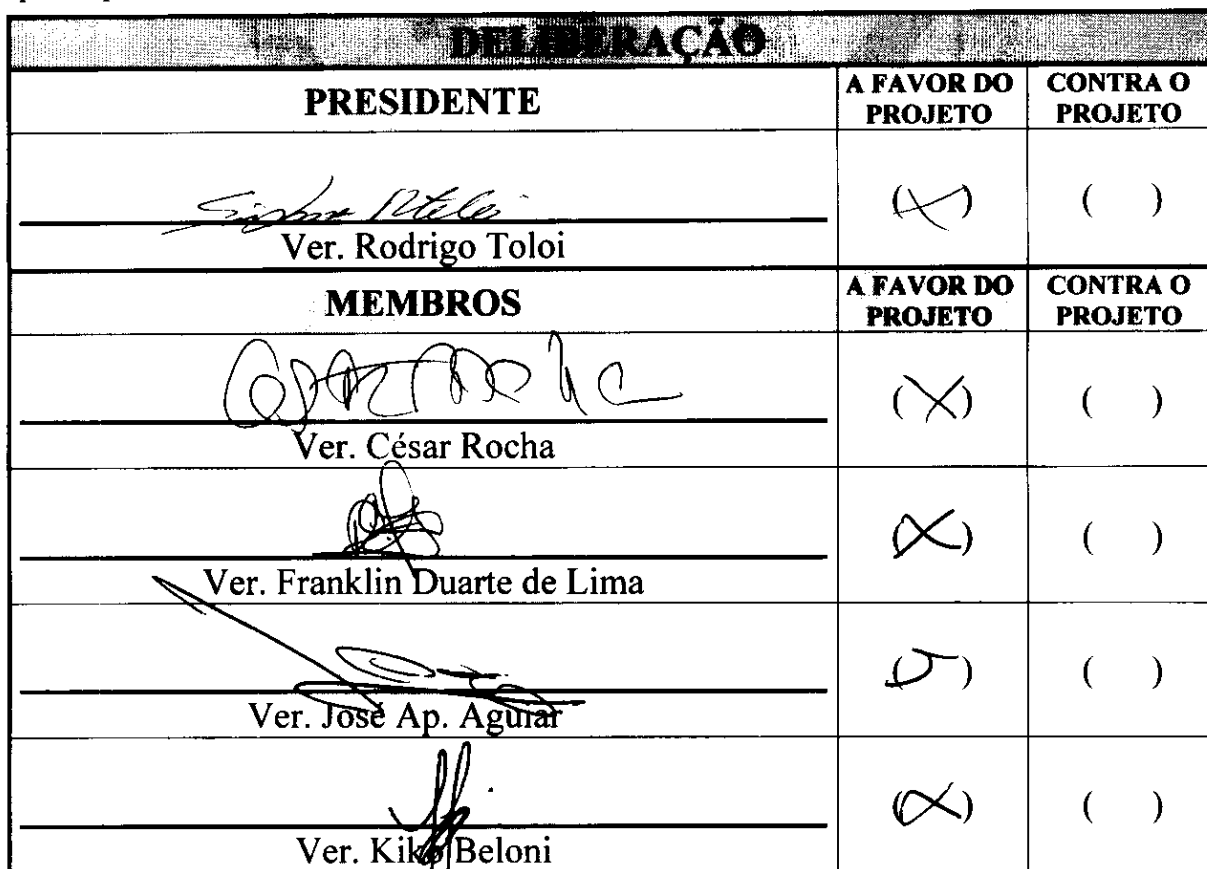 DELIBERAÇÃO
PRESIDENTE
A FAVOR DO PROJETO
CONTRA O PROJETO
( X )
( )
Ver. Rodrigo Toloi
MEMBROS
A FAVOR DO PROJETO
CONTRA O PROJETO
( X )
( )
Ver. César Rocha
( X )
( )
Ver. Franklin Duarte de Lima
( )
( )
Ver. José Ap. Aguiar
( X )
( )
Ver. Kiko Beloni